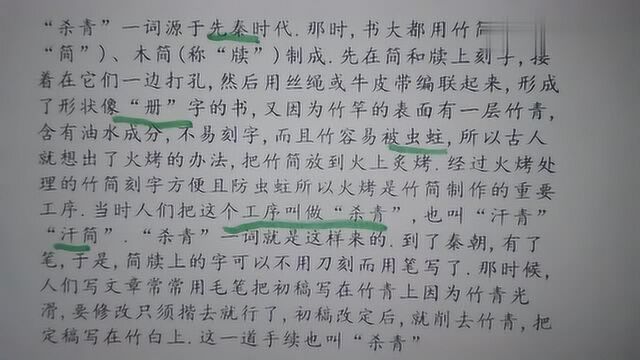 “杀青”一词源于先秦时代.那时,书大都用竹简
“简”)、木简(称“牍”)制成.先在简和牍上刻字,接
着在它们一边打孔,然后用丝绳或牛皮带编联起来,形成
了形状像“册”字的书,又因为竹竿的表面有一层竹青,
含有油水成分,不易刻字,而且竹容易被虫蛀,所以古人
就想出了火烤的办法,把竹简放到火上炙烤.经过火烤处
理的竹简刻字方便且防虫蛀所以火烤是竹简制作的重要
工序.当时人们把这个工序叫做“杀青”,也叫“汗青”
“汗简”.“杀青”一词就是这样来的.到了秦朝,有了
笔,于是,简牍上的字可以不用刀刻而用笔写了.那时候,
人们写文章常常用毛笔把初稿写在竹青上因为竹青光
滑,要修改只须揩去就行了,初稿改定后,就削去竹青,把
定稿写在竹白上.这一道手续也叫“杀青”